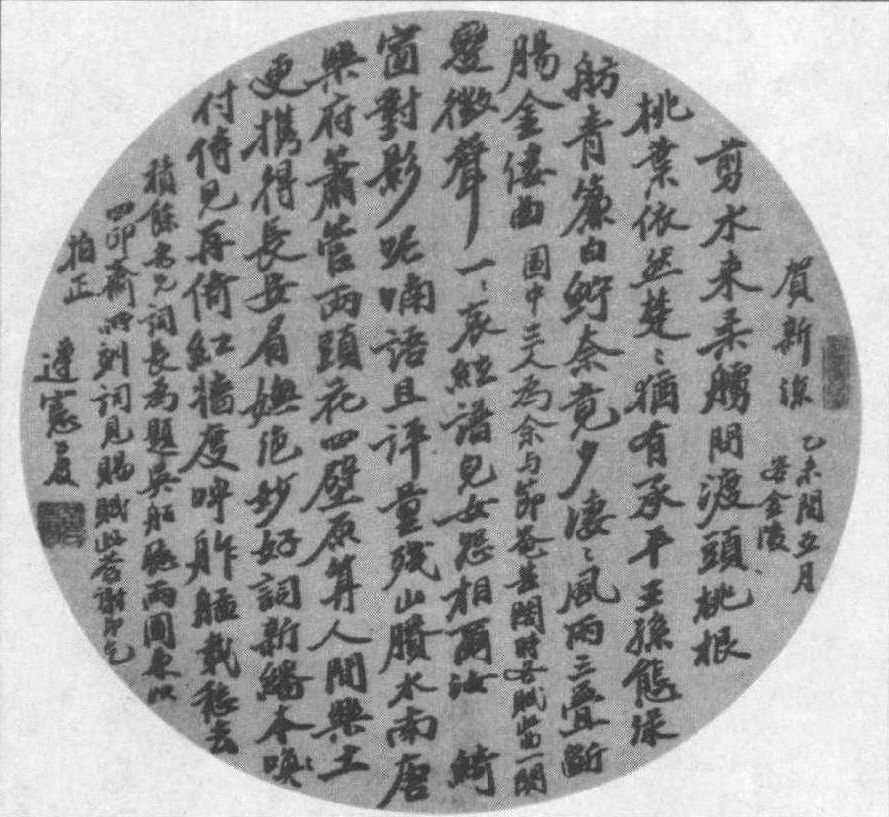 賀新涼 乙未閏五月
客金陵
剪水來柔艣問渡頭桃根
桃葉依然楚〻猶有承平王孫態淥
舫青簾白紵奈竟少淒〻風雨三疊斷
腸金縷曲 圖中三人為余與節菴芸閣時各賦此曲一闋
變徵聲一〻哀絃譜兒女怨相爾汝 綺
窗對影呢喃語且評量殘山賸水南唐
樂府簫管兩頭花四壁原算人間樂土
更攜得長安眉嫵絕妙好詞新繙本喚
付倚兒再倚紅牆度呼舴艋載愁去
積餘老兄詞長為題吳船聽雨圖更以
四印齋所刻詞見賜賦此答謝即乞
拍正 遵憲